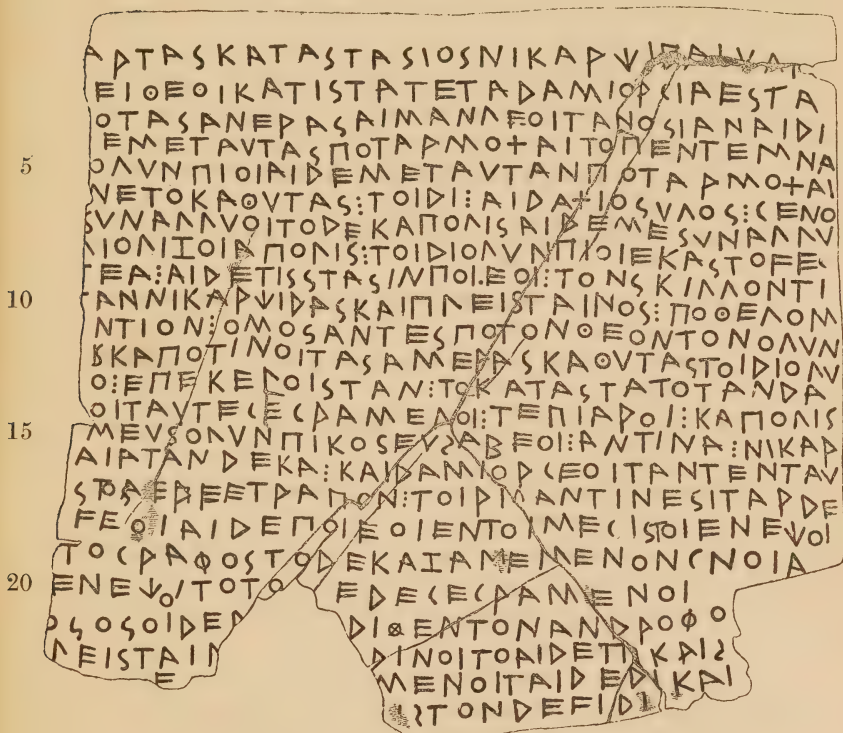 ΑΡΤΑΣΚΑΤΑΣΤΑΣΙΟΣΝΙΚΑΡΨΙΠΑΙ
ΕΙΘΕΟΙΚΑΤΙΣΤΑΤΕΤΑΔΑΜΙΟΡΓΙΑΕΣΤΑ
ΟΤΑΣΑΝΕΡΑΣΑΙΜΑΝΛΕΟΙΤΑΝΟΣΙΑΝΑΙΔΙ
ΕΜΕΤΑΥΤΑΣΠΟΤΑΡΜΟ+ΑΙΤΟΠΕΝΤΕΜΝΑ
5 ΟΛΥΝΠΙΟΙΑΙΔΕΜΕΤΑΥΤΑΝΠΟΤΑΡΜΟ+ΑΙ
ΝΕΤΟΚΑΘΥΤΑΣ⋮ΤΟΙΔΙ⋮ΑΙΔΑ+ΙΟΣΥΛΟΣ⋮ΓΕΝΟ
ΣΥΝΑΛΛΥΟΙΤΟΔΕΚΑΠΟΛΙΣΑΙΔΕΜΕΣΥΝΑΛΛΥ
ΛΙΟΛΙΞΟΙΑΠΟΛΙΣ⋮ΤΟΙΔΙΟΛΥΝΠΙΟΙΕΚΑΣΤΟϜΕ
ΤΕΑ⋮ΑΙΔΕΤΙΣΣΤΑΣΙΝΠΟΙΕΟΙ⋮ΤΟΝΣΚΙΛΛΟΝΤΙ
10 ΤΑΝΝΙΚΑΡΨΙΔΑΣΚΑΙΠΛΕΙΣΤΑΙΝΟΣ⋮ΠΟΘΕΛΟΜ
ΝΤΙΟΝ⋮ΟΜΟΣΑΝΤΕΣΠΟΤΟΝΘΕΟΝΤΟΝΟΛΥΝ
ΚΑΠΟΤΙΝΟΙΤΑΣΑΜΕΡΑΣΚΑΘΥΤΑΣΤΟΙΔΙΟΛΥ
Ο⋮ΕΠΕΚΕΡΟΙΣΤΑΝ⋮ΤΟΚΑΤΑΣΤΑΤΟΤΑΝΔΑ
ΟΙΤΑΥΤΕΓΕΓΡΑΜΕΝΟΙ⋮ΤΕΠΙΑΡΟΙ⋮ΚΑΠΟΛΙΣ
15 ΜΕΥΣΟΛΥΝΠΙΚΟΣΕΥΣΑΒΕΟΙ⋮ΑΝΤΙΝΑ⋮ΝΙΚΑΡ
ΑΙΑΤΑΝΔΕΚΑ⋮ΚΑΙΔΑΜΙΟΡΓΕΟΙΤΑΝΤΕΝΤΑΥ
ΣΤΟΑΕΡΕΕΤΡΑΠΟΝ⋮ΤΟΙΡΜΑΝΤΙΝΕΣΙΤΑΡΔΕ
ϜΕΟΙΑΙΔΕΠΟΙΕΟΙΕΝΤΟΙΜΕΓΙΣΤΟΙΕΝΕΨΟΙ
ΤΟΓΡΑΦΟΣΤΟΔΕΚΑΙΑΜΕΜΕΝΟΝΓΝΟΙΑ
20 ΕΝΕΨΟΙΤΟΤΟ ΕΔΕΓΕΓΡΑΜΕΝΟΙ
ΟΣΟΣΟΙΔΕΑ ΔΙΘΕΝΤΟΝΑΝΔΡΟΦΟ
ΛΕΙΣΤΑΙΝ ΔΙΝΟΙΤΟΑΙΔΕΤΙΚΑΙΣ
Ε ΜΕΝΟΙΤΑΙΔΕΔΙΚΑΙ
ΙΣΤΟΝΔΕϜΙΔΙ